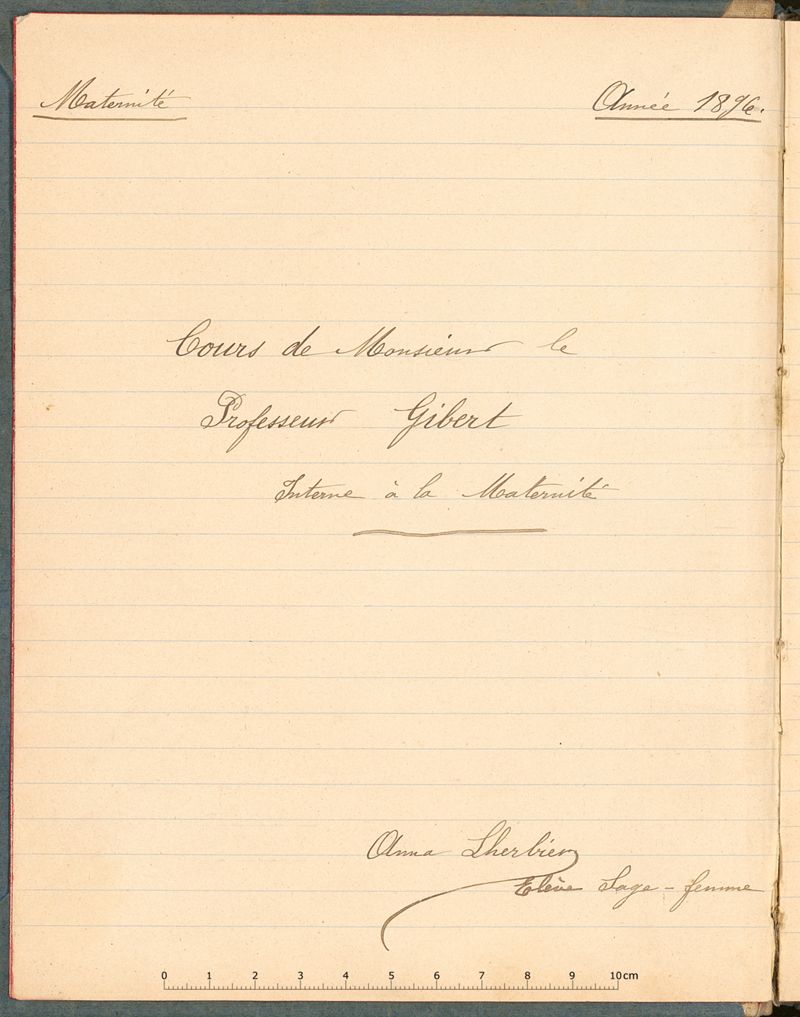 Maternité
Année 1896.
Cours de Monsieur le
Professeur Gibert
Interne à la Maternité
Anna Lherbier
Elève Sage-femme
0 1 2 3 4 5 6 7 8 9 10 cm